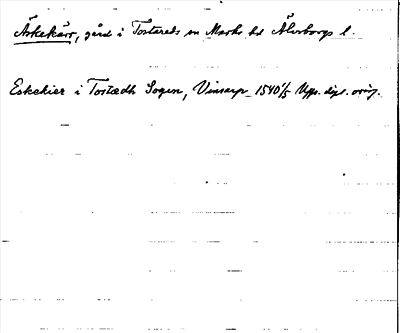 Äskekärr, gård i Tostareds sn Marks hd Älvborgs l.
Eskekier i Tostædh Sogen, Vinsarp 1540 1/5 Upps. dipl. orig.